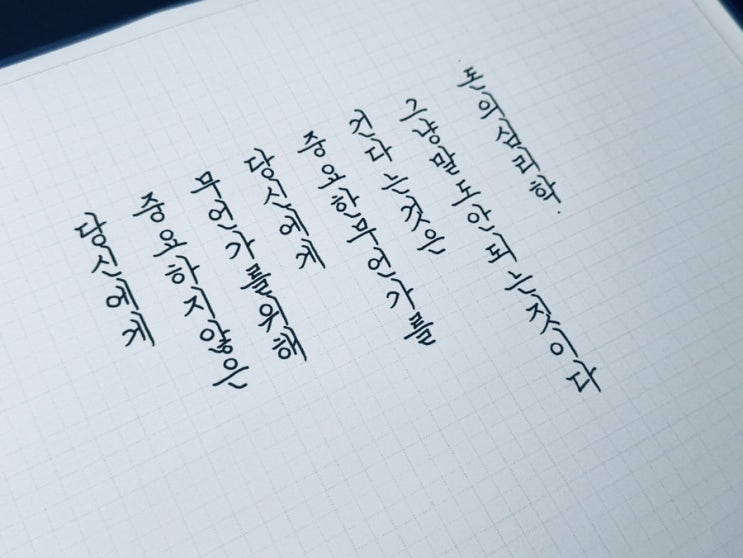 당신에게
중요하지않은
무언가를위해
당신에게
중요한무언가를
건다는것은
그냥말도안되는짓이다
돈의심리학